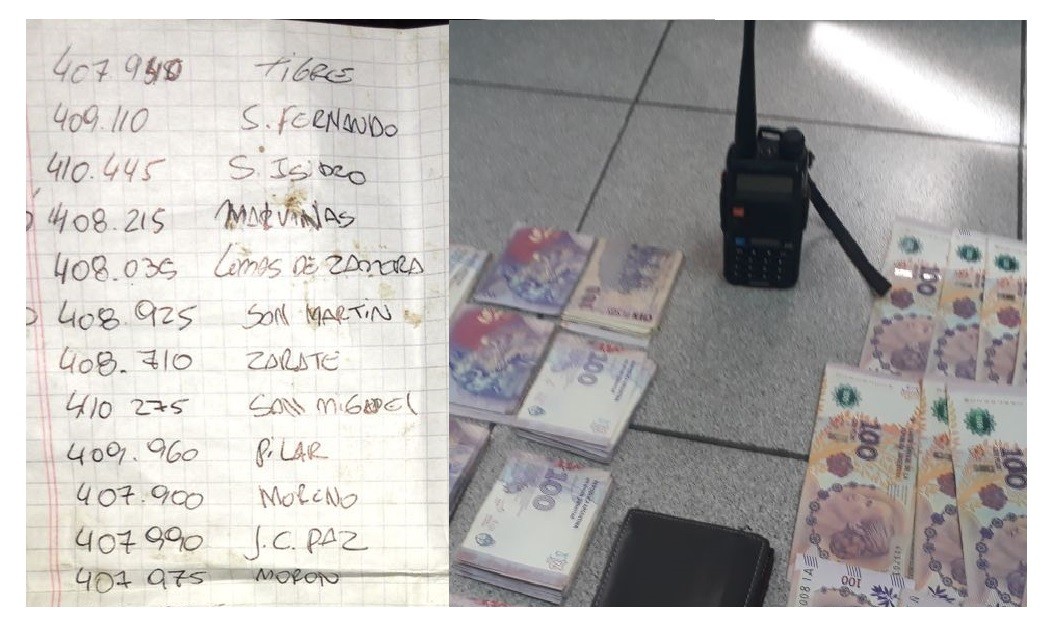 407 940 TIGRE
409.110 S. FERNANDO
410.445 S. ISIDRO
408.215 MAQUINAS
408.035 LOMAS DE ZAMORA
408.925 SAN MARTIN
408.710 ZARATE
410 275 SAN MIGUEL
409.960 PILAR
407.900 MORENO
407 990 J.C. PAZ
407 975 MORON
100
100
100
100
100
100